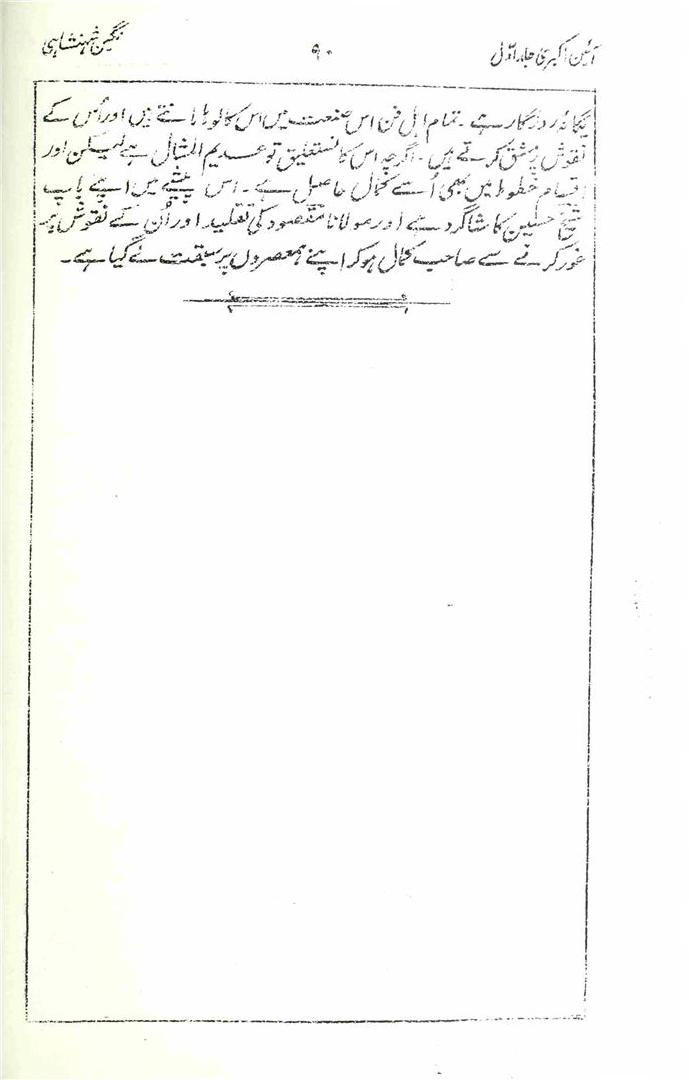 آئین اکبری جلد اوّل
۹۰
نگین شہنشاہی
یگانۂ روزگار ہے ۔ تمام اہل فن اس صنعت میں اس کا لوہا مانتے ہیں اور اُس کے
نقوش پر مشق کرتے ہیں ۔ اگرچہ اس کا نستعلیق تو عدیم المثال ہے لیکن اور
اقسام خطوط میں بھی اُسے کمال حاصل ہے ۔ اس پیشے میں اپنے باپ
شیخ حسین کا شاگرد ہے اور مولانا مقصود کی تقلید اور اُن کے نقوش پر
غور کرنے سے صاحب کمال ہو کر اپنے ہمعصروں پر سبقت لے گیا ہے ۔